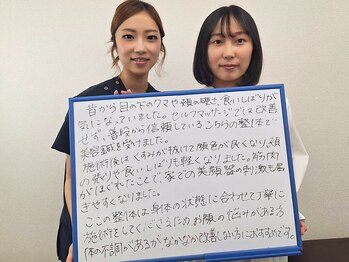 昔から目の下のクマや頬の硬さ、食いしばりが
気になっていました。セルフマッサージでは改善
せず、普段から信頼しているこちらの整体で
美容鍼を受けました。
施術後はくすみが抜けて顔色が良くなり、頬
の張りや食いしばりも軽くなりました。筋肉
がほぐれたことで家での美顔器の刺激も届
きやすくなりました。
ここの整体は身体の状態に合わせて丁寧に
施術をしてくださるため お顔の悩みがある方
体の不調があるが、なかなか改善しない方におすすめです。